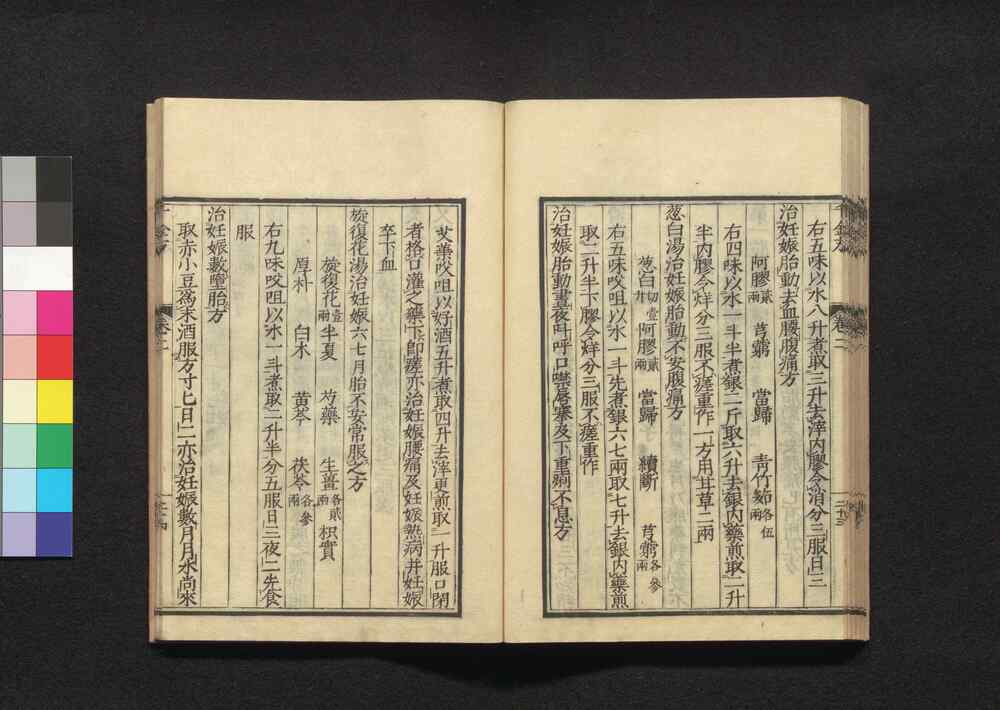 右五味以水八升煮取三升去滓内膠令消分三服日三
治妊娠胎動去血腰腹痛方
阿膠貳兩 芎藭 當歸 青竹茹各伍兩
右四味以水一斗半煮銀二斤取六升去銀内藥煎取二升
半内膠令烊分三服不瘥重作一方用甘草二兩
葱白湯治妊娠胎動不安腹痛方
葱白切壹升 阿膠貳兩 當歸 續斷 芎藭各參兩
右五味㕮咀以水一斗先煮銀六七兩取七升去銀内藥煎
取二升半下膠令烊分三服不瘥重作
治妊娠胎動晝夜叫呼口噤唇搴及下重痢不息方
艾葉㕮咀以好酒五升煮取四升去滓更煎取一升服口閉
者格口灌之藥下即瘥亦治妊娠腰痛及妊娠熱病并妊娠
卒下血
旋復花湯治妊娠六七月胎不安常服之方
旋復花壹兩 半夏 芍藥 生薑各貳兩 枳實
厚朴 白术 黄芩 茯苓各參兩
右九味㕮咀以水一斗煮取二升半分五服日三夜二先食
服
治妊娠數墮胎方
取赤小豆爲末酒服方寸匕日二亦治妊娠數月月水尚來
卷二